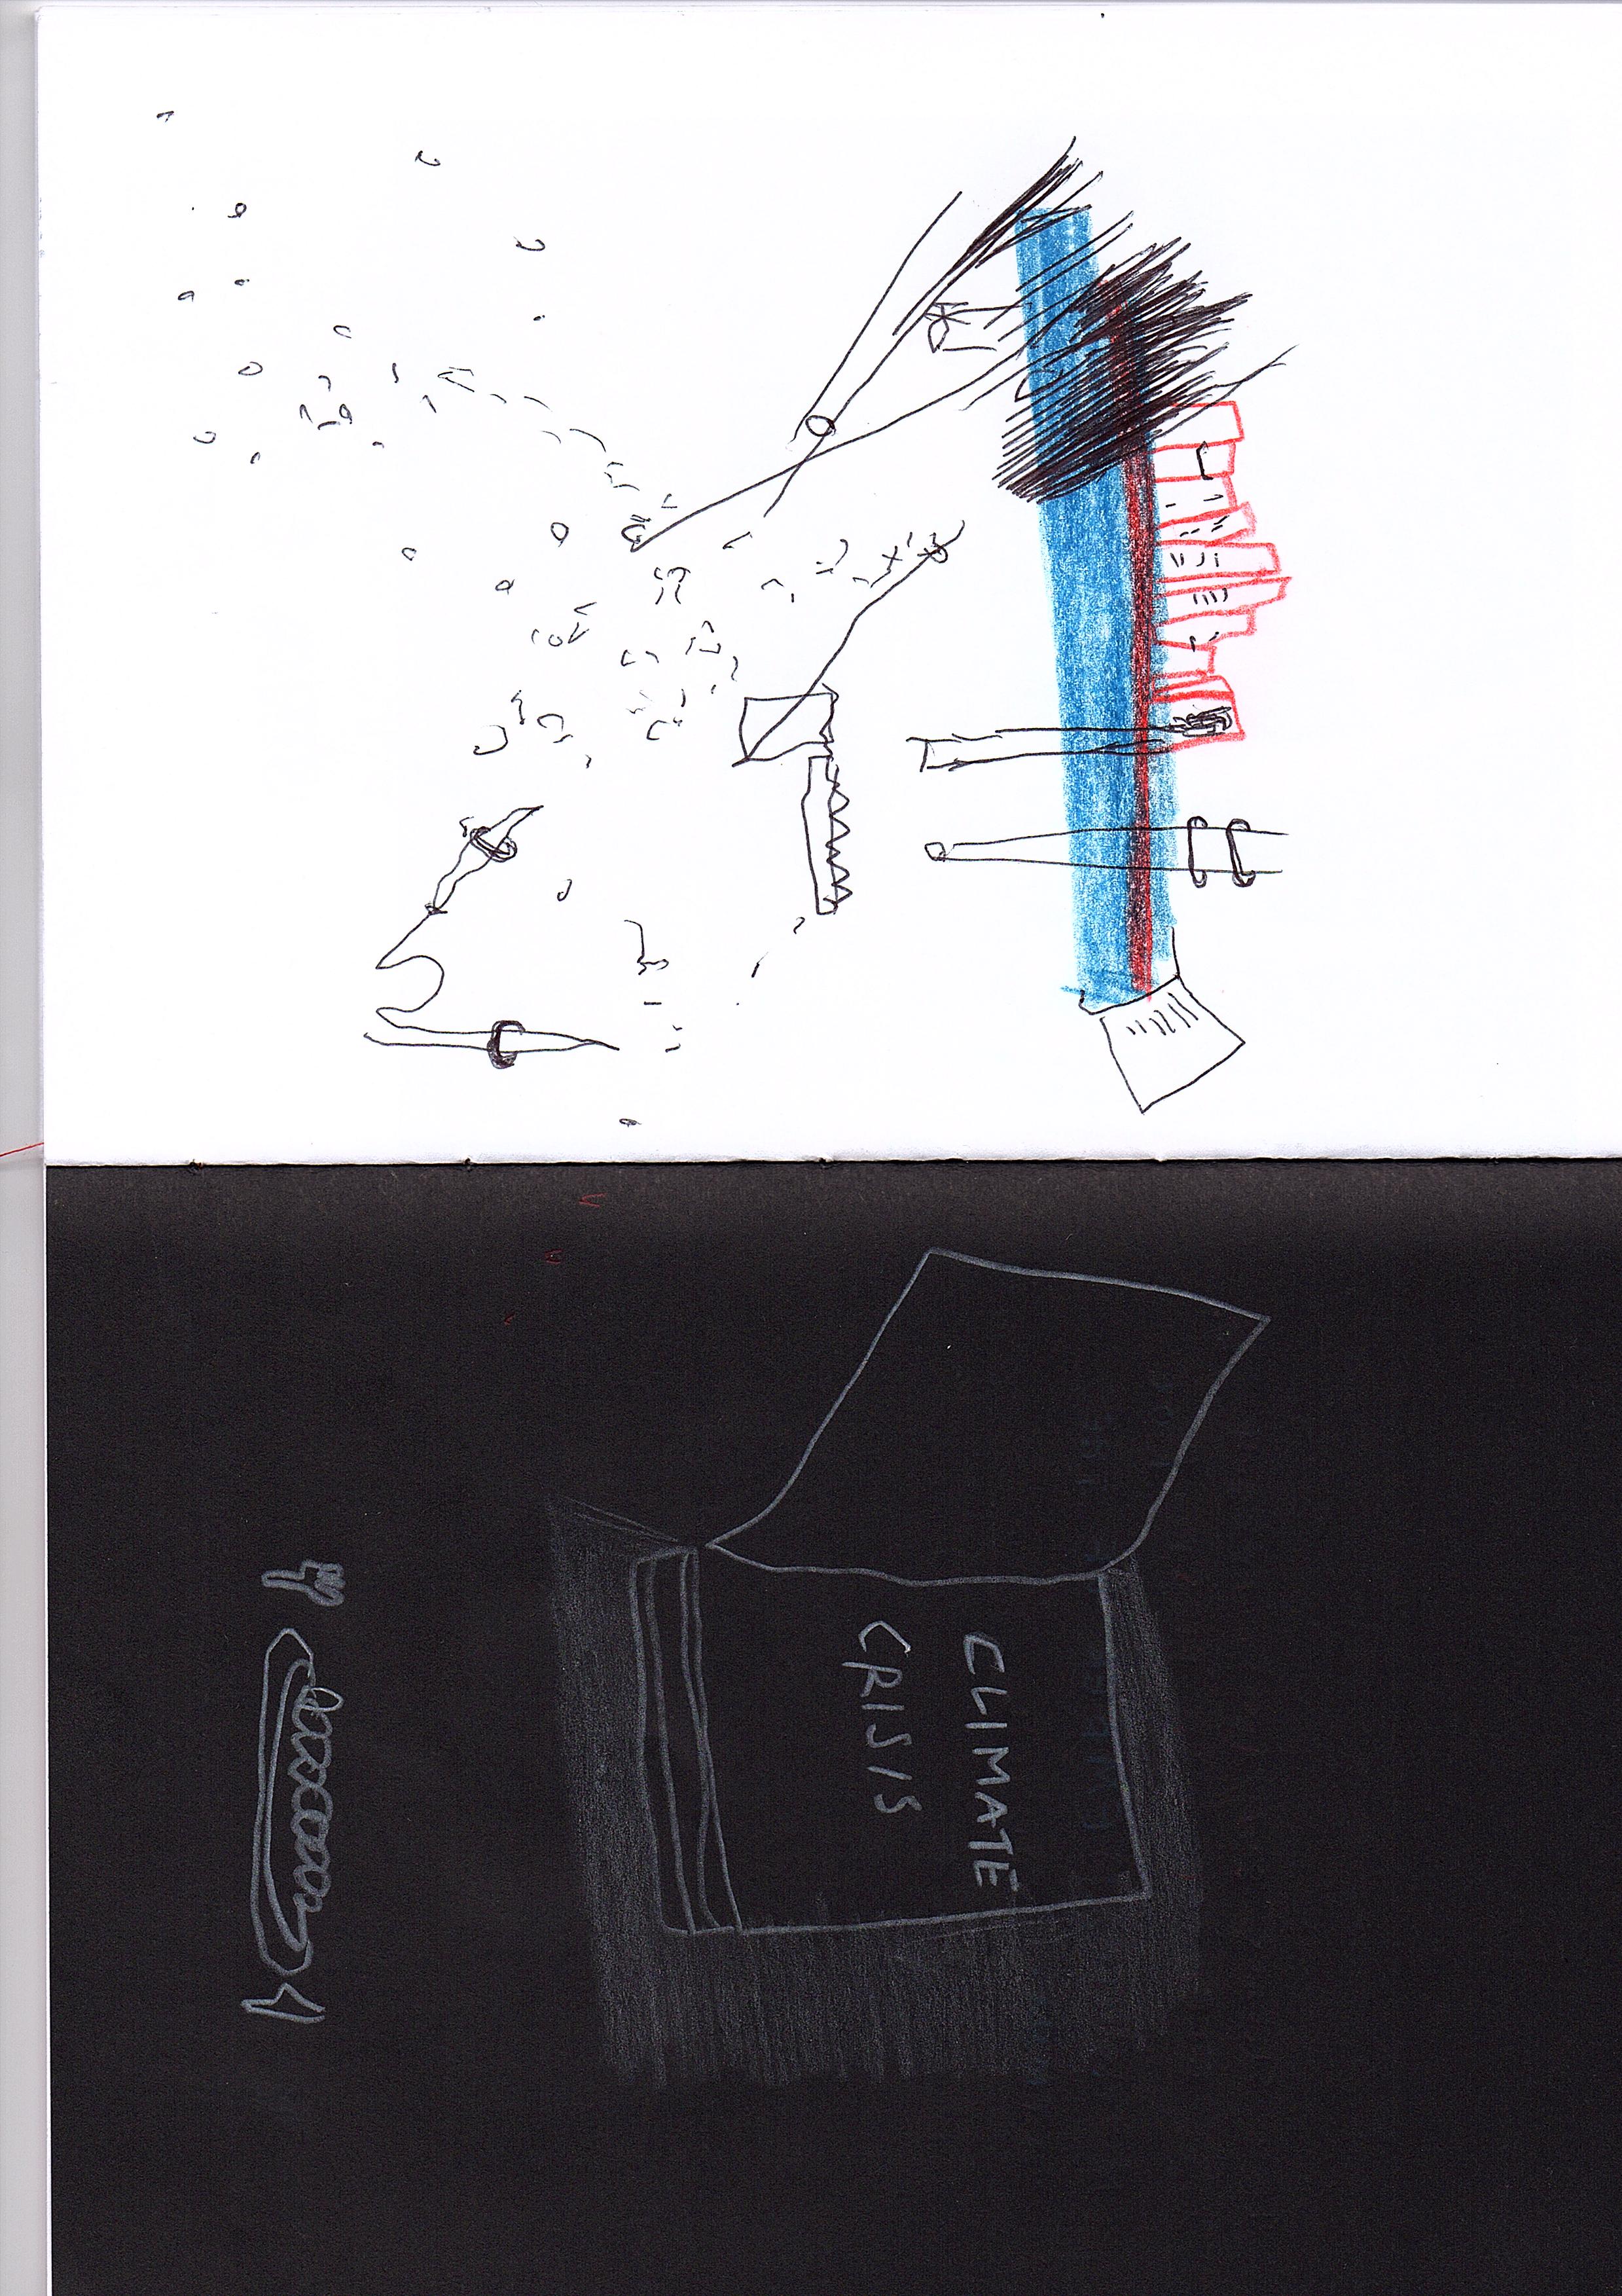 CLIMATE
CRISIS